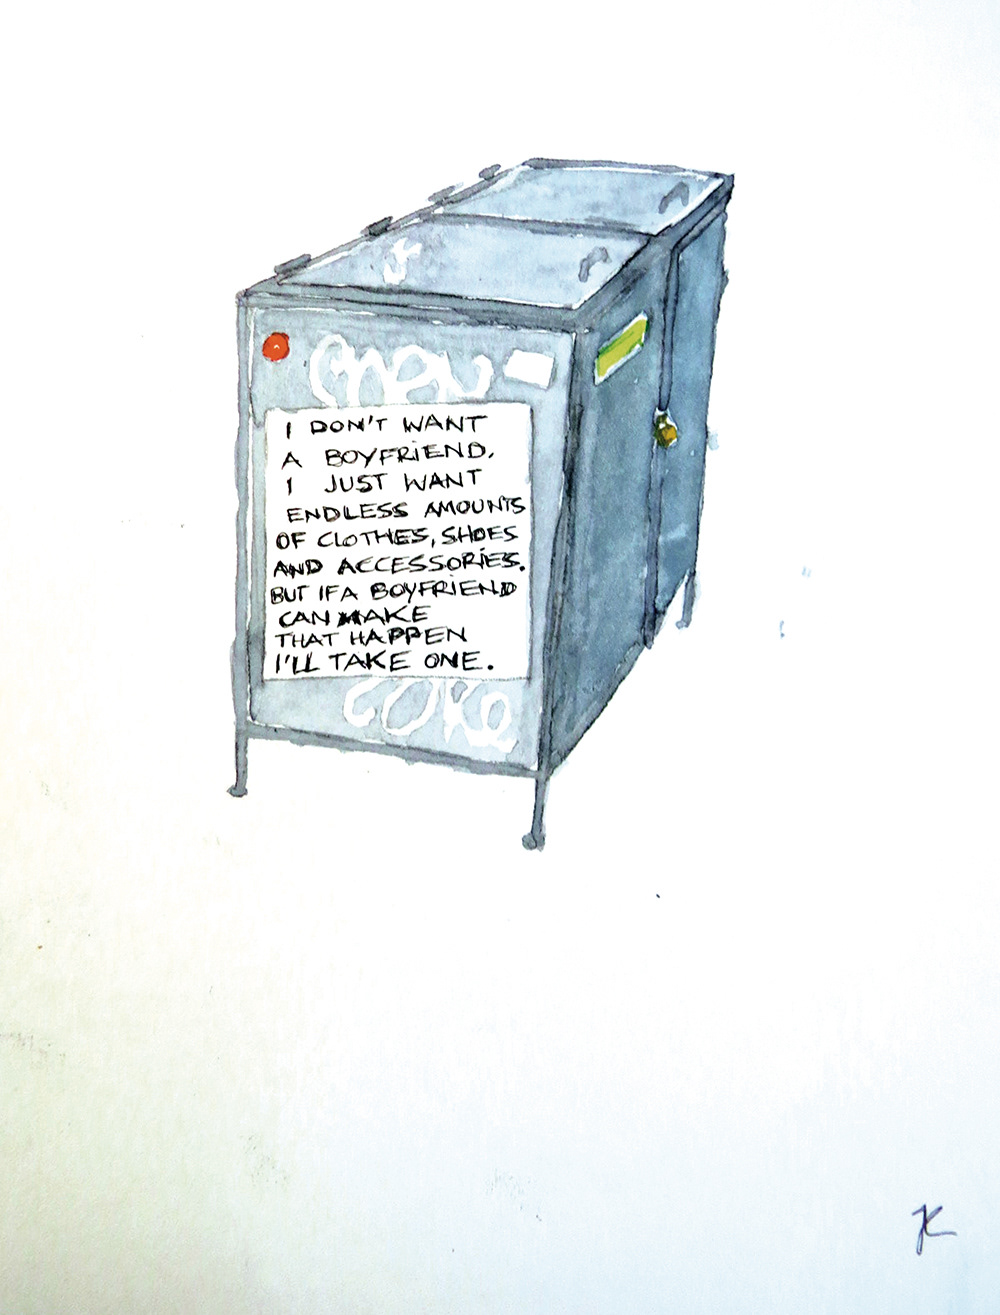 I DON'T WANT
A BOYFRIEND.
I JUST WANT
ENDLESS AMOUNTS
OF CLOTHES, SHOES
AND ACCESSORIES.
BUT IF A BOYFRIEND
CAN MAKE
THAT HAPPEN
I'LL TAKE ONE.
JK